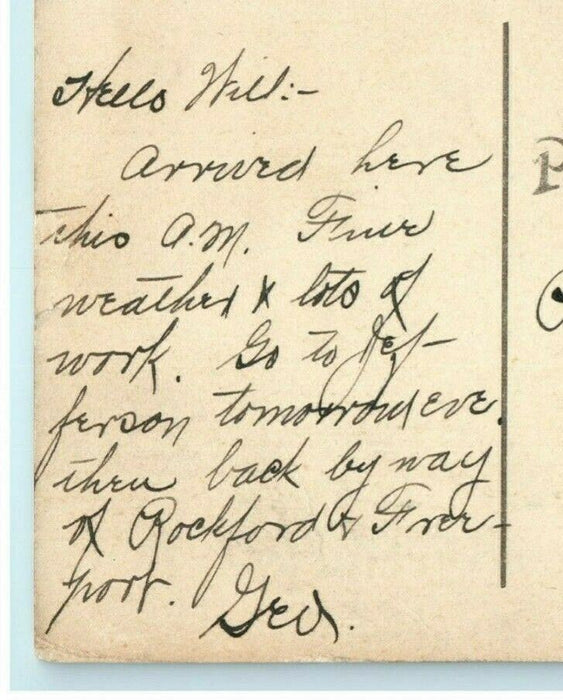 Hello Will:-
Arrived here
this A.M. Fine
weather & lots of
work. Go to Jef-
ferson tomorrow eve.
then back by way
of Rockford & Free-
port. Geo.
P